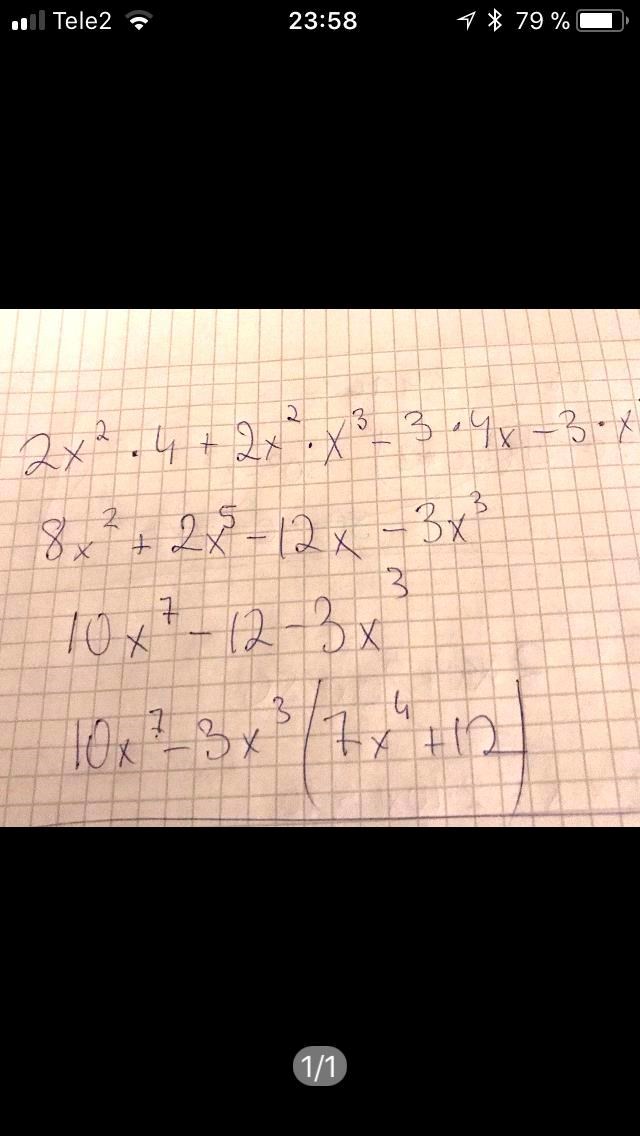 Tele2 23:58 79 %
2x² · 4 + 2x² · x³ - 3 · 4x - 3 · x
8x² + 2x⁵ - 12x - 3x³
10x⁷ - 12 - 3x³
10x⁷ - 3x³ (7x⁴ + 12)
1/1